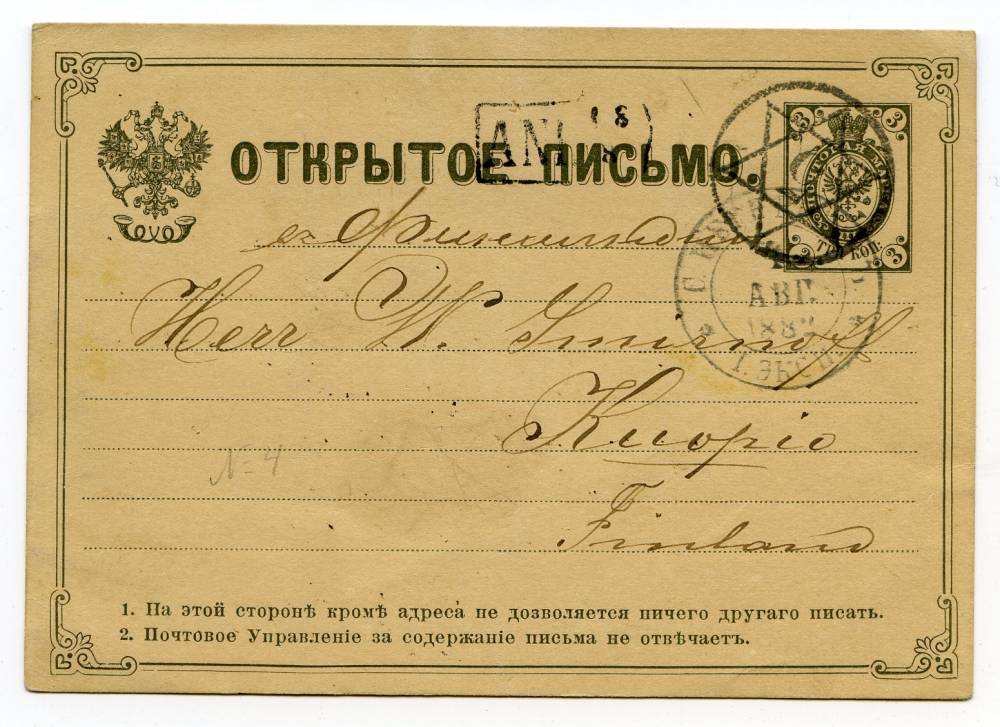 ANK
ОТКРЫТОЕ ПИСЬМО.
3 3
ТРИ КОП:
3 3
въ Финляндiю
АВГ.
188
1. ЭКСП.
Herr W. Smirnoff
Kuopio
№ 4
Finland
1. На этой сторонѣ кромѣ адреса не дозволяется ничего другаго писать.
2. Почтовое Управленіе за содержаніе письма не отвѣчаетъ.